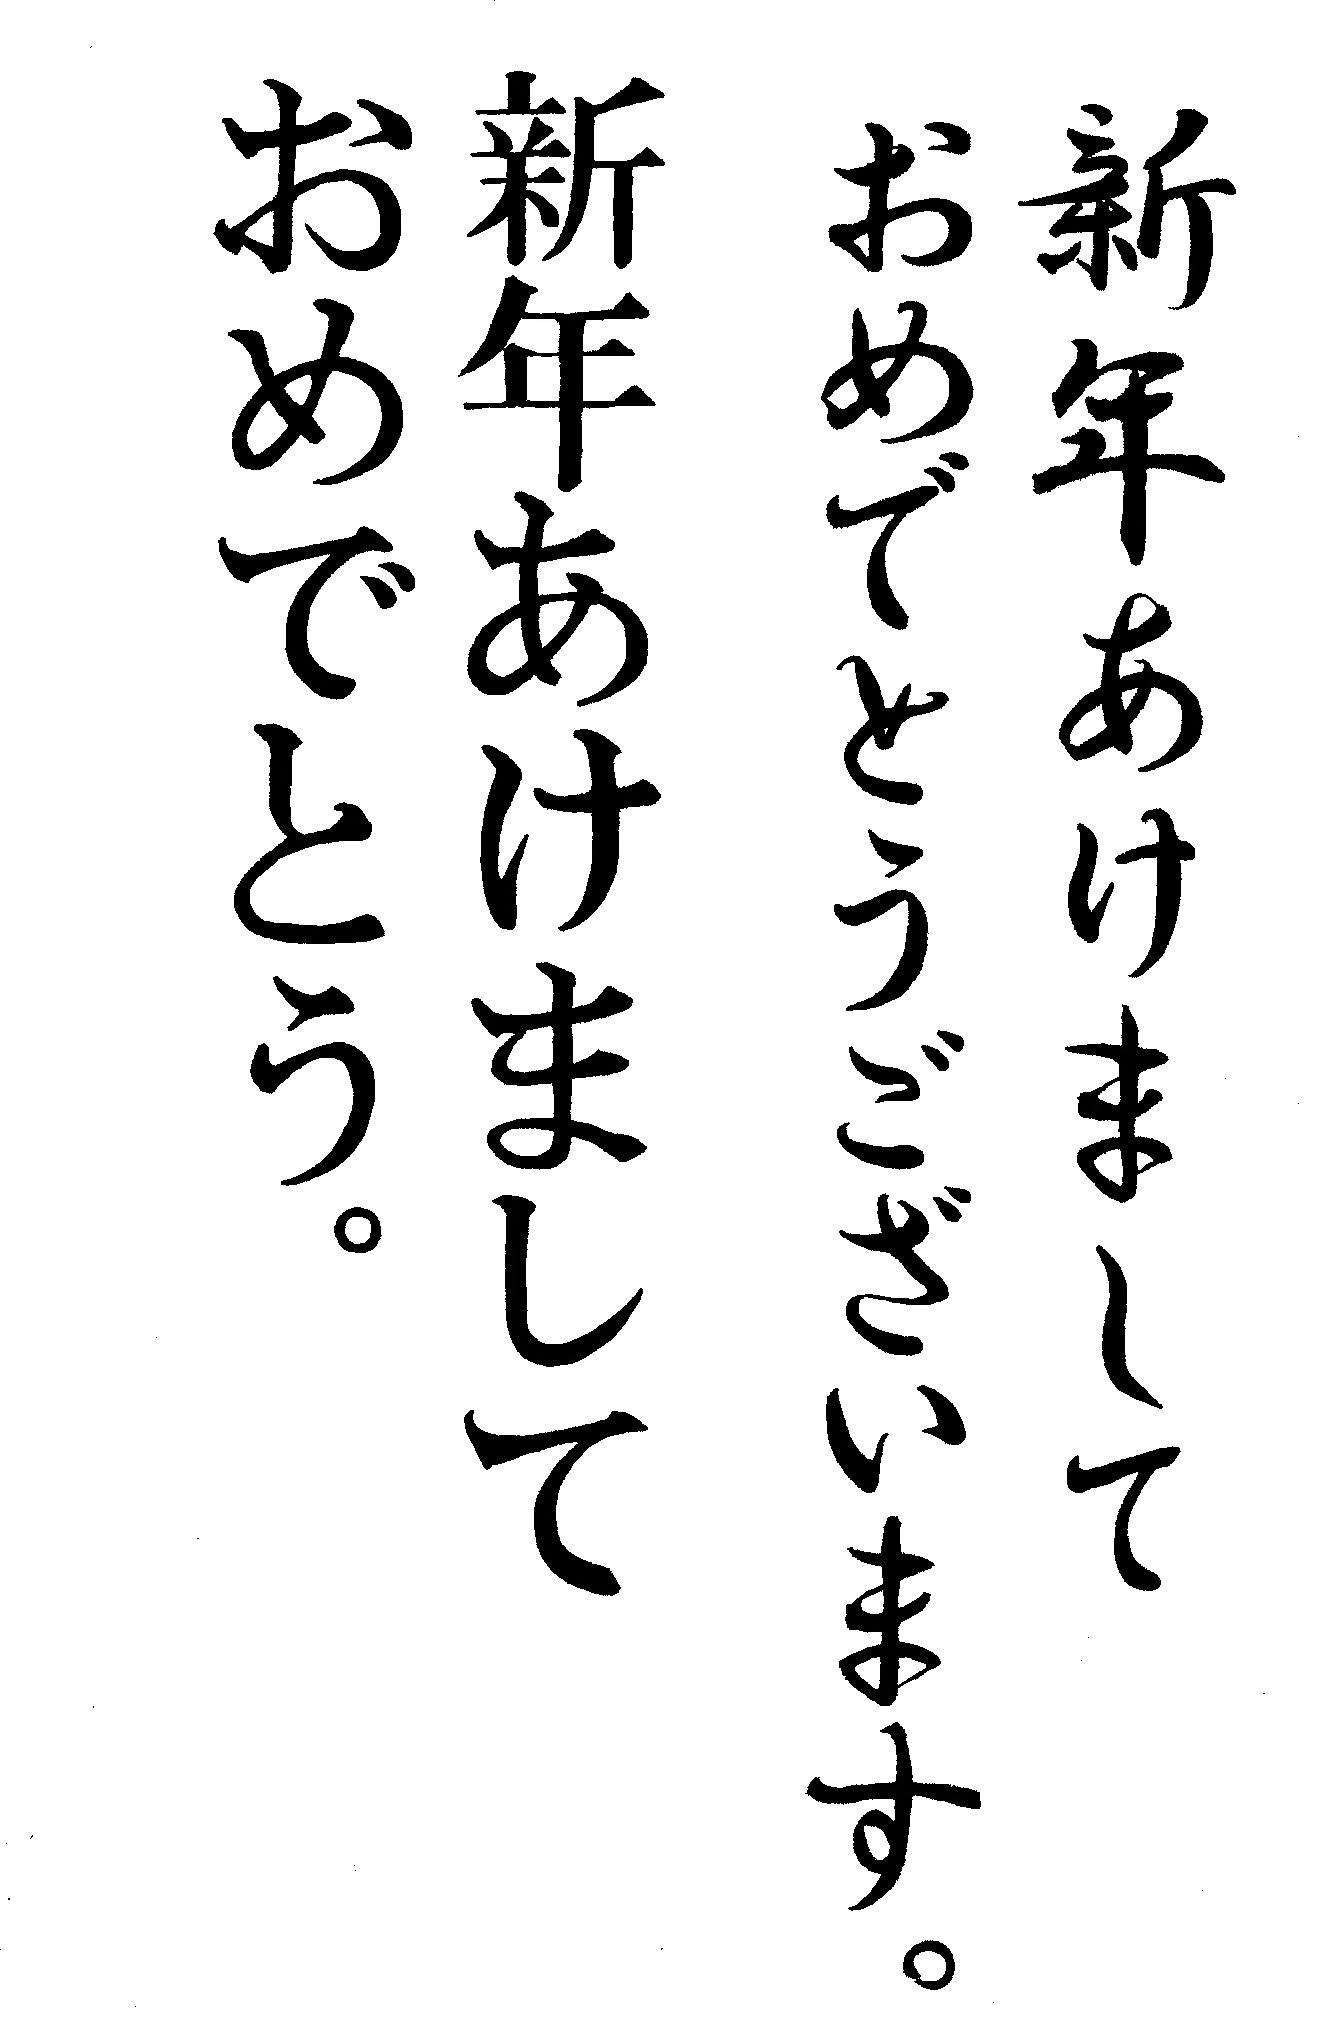 新年あけまして
おめでとうございます。
新年あけまして
おめでとう。